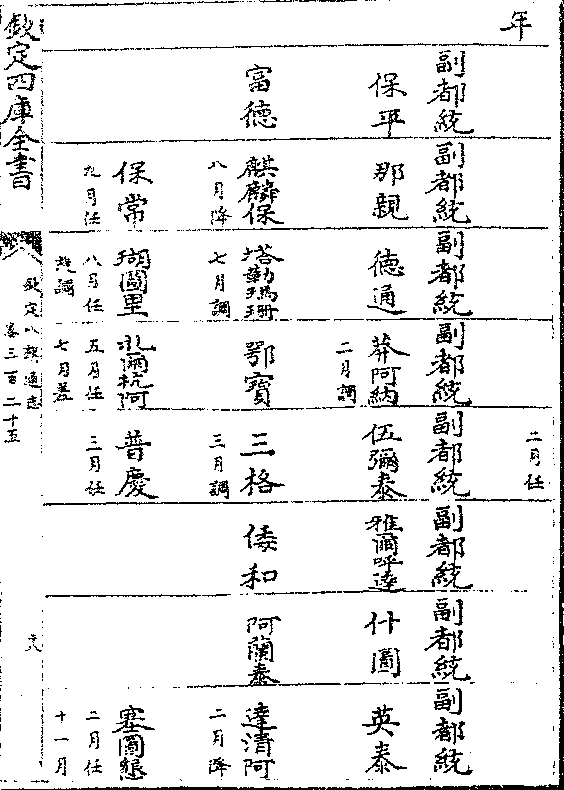 年
二月任
副都統 副都統 副都統 副都統 副都統 副都統 副都統 副都統
保平 那親 德通 莽阿納 伍彌泰 雅爾呼達 什圖 英泰
二月調
富德 麒麟保 塔勒瑪珊 鄂寶 三格 倭和 阿蘭泰 達清阿
八月降 七月調 三月調 二月降
保常 瑚圖里 永爾杭阿 普慶 塞圖懇
九月任 八月任 五月任 三月任 二月任
旋調 七月差 十一月
欽定四庫全書
欽定八旗通志
卷三百二十五
十八